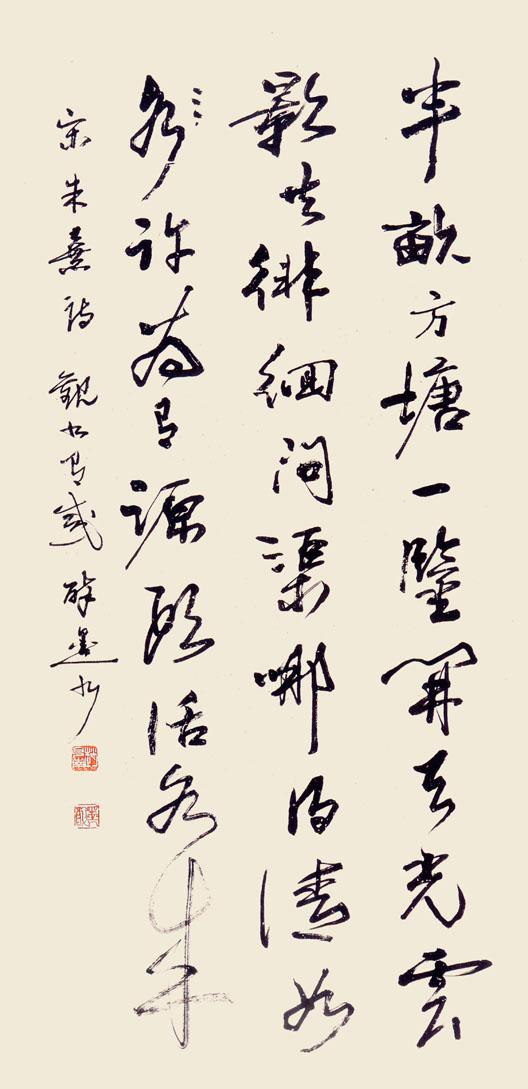 半畝方塘一鑒開天光雲
影共徘徊問渠哪得清如
許為有源頭活水來
宋朱熹詩觀书有感醉书